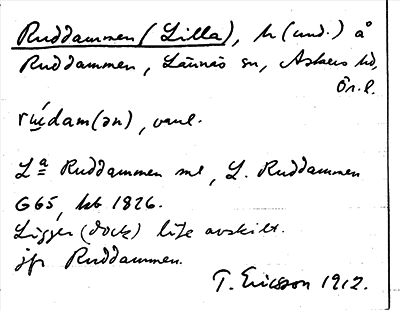 Ruddammen (Lilla), h (und.) å
Ruddammen, Lännäs sn, Askers hd,
Ör. l.
dam(ən), vanl.
Lª Ruddammen ml, L. Ruddammen
G65, hkt 1826.
Ligger (dock) lite avskilt.
jfr Ruddammen.
T. Ericsson 1912.